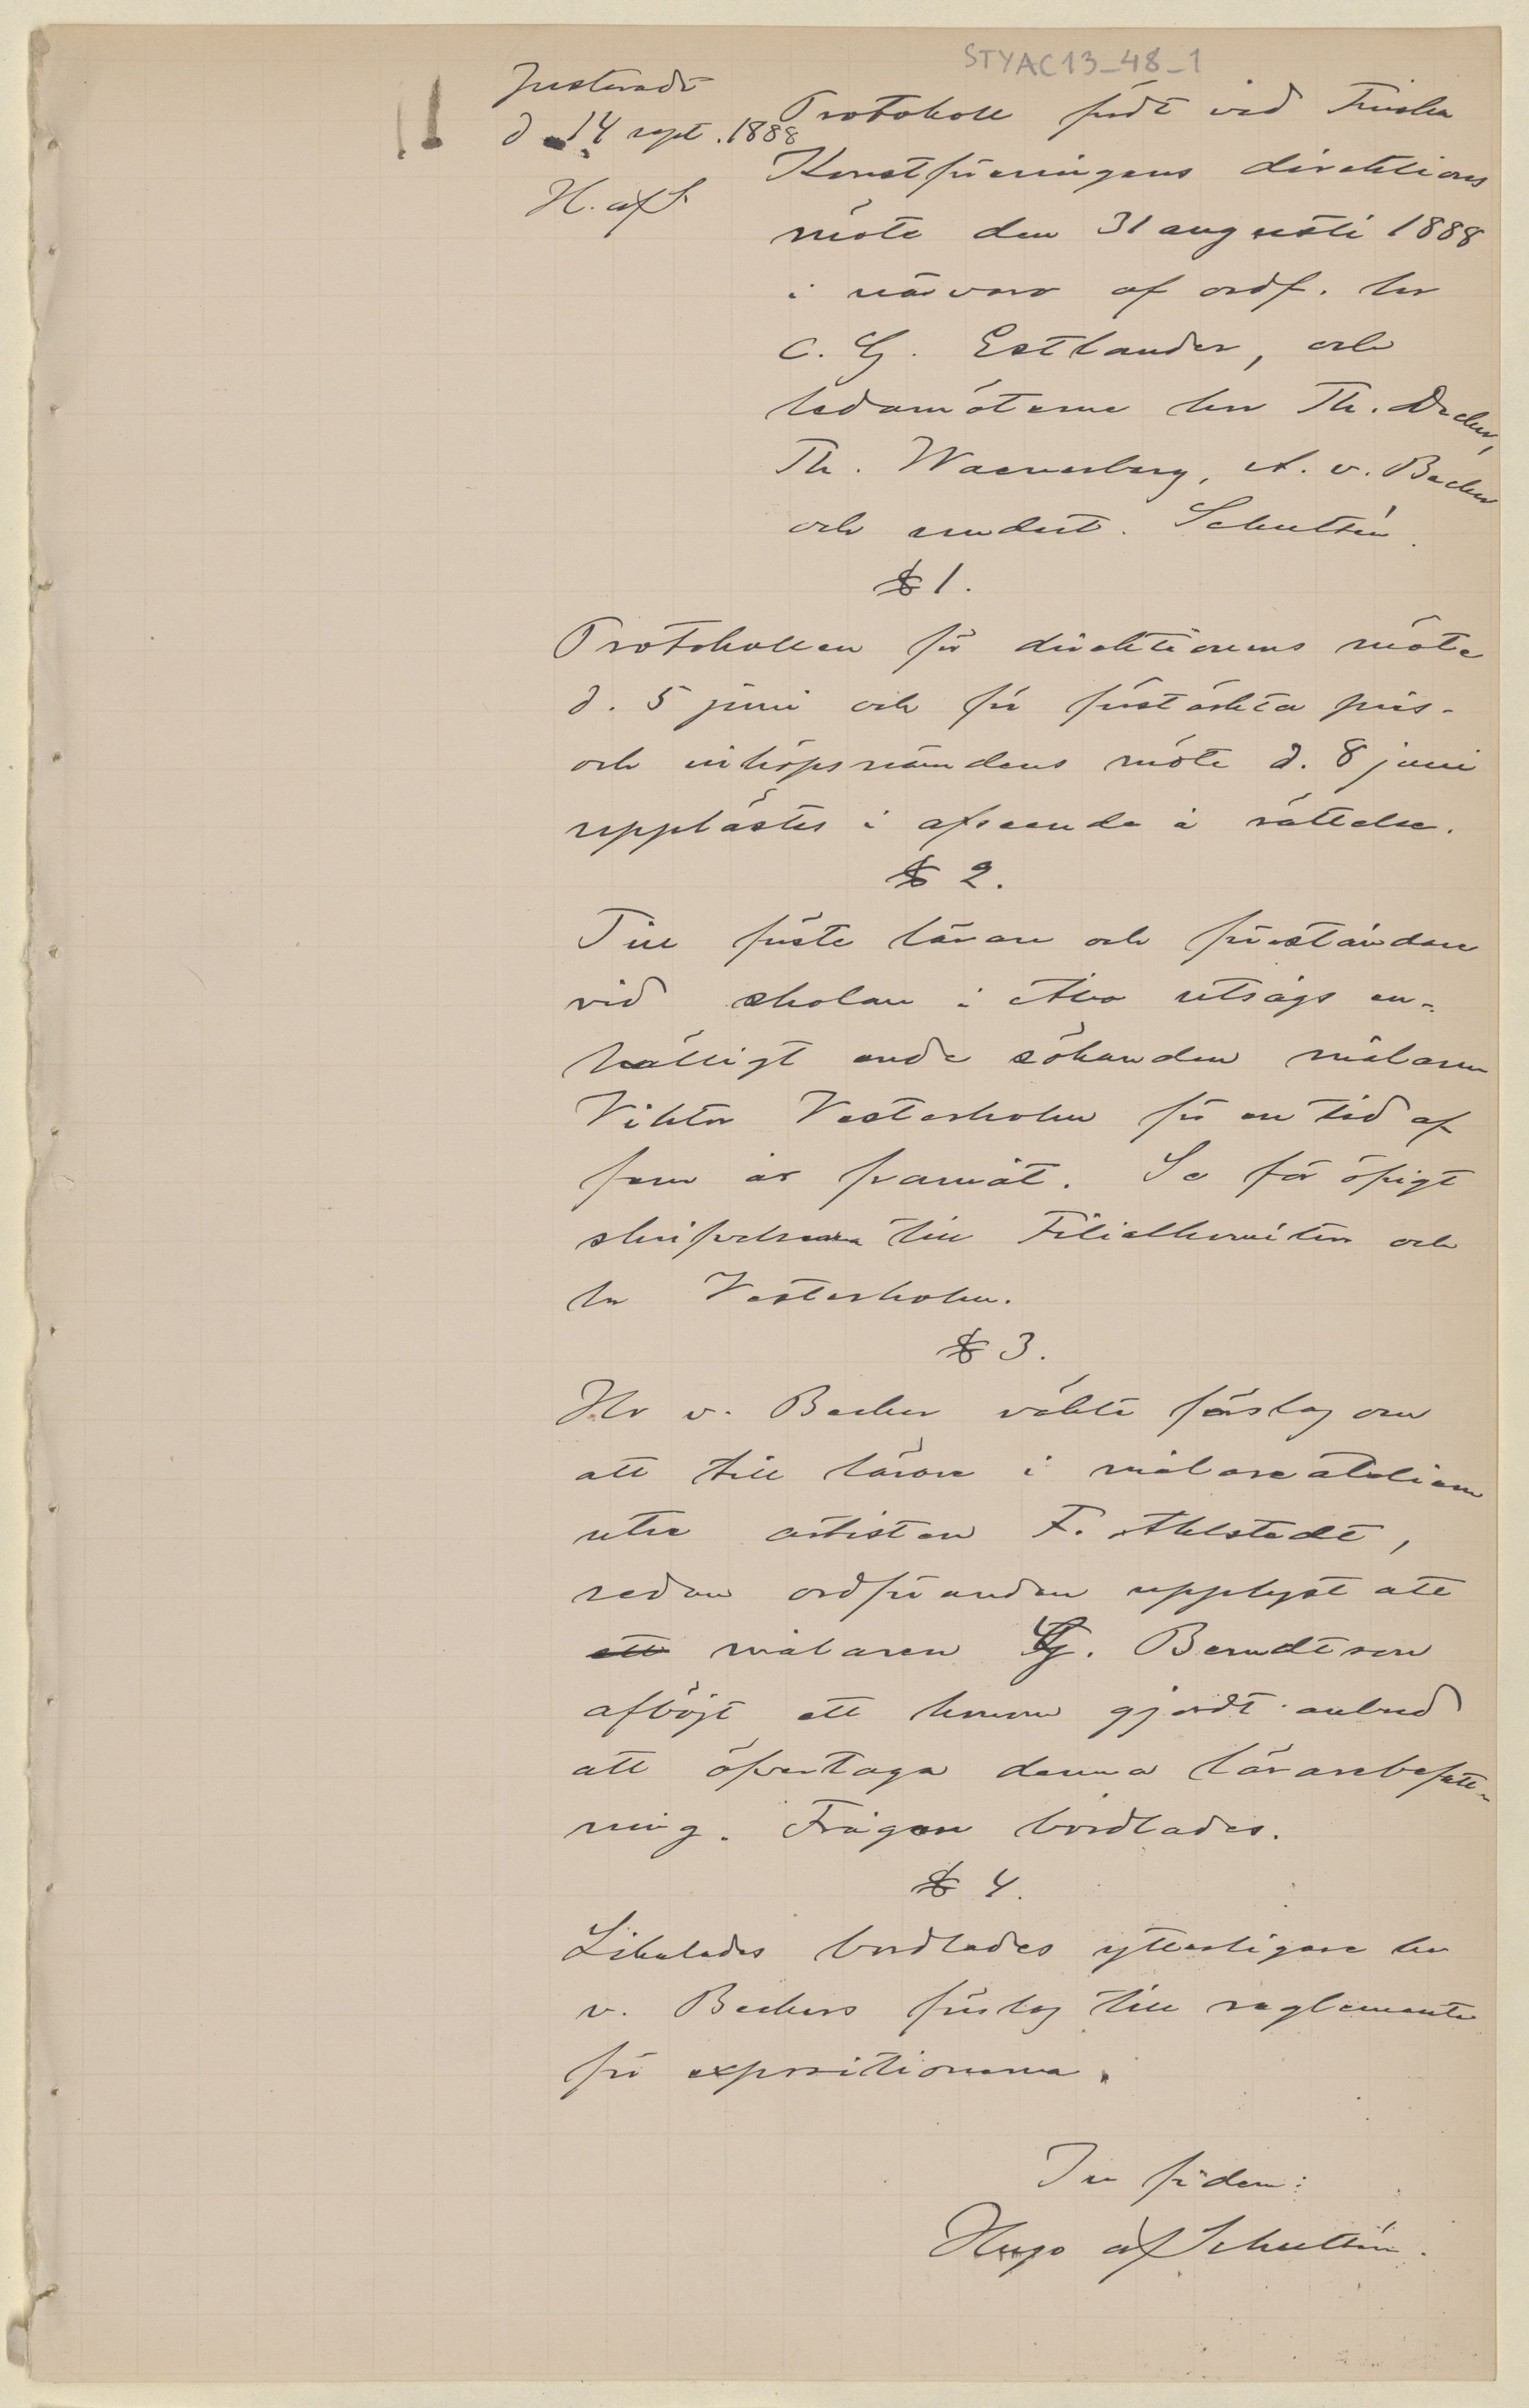 STYAC13_48_1
Justeradt
d. 14 sept. 1888
H. af S.
Protokoll fördt vid Finska
Konstföreningens direktions
möte den 31 augusti 1888
i närvaro af ordf. hr
C. G. Estlander, och
ledamöterne hrr Th. Decker,
Th. Waenerberg, A. v. Becker
och undert. Schultén.
§ 1.
Protokollen för direktionens möte
d. 5 juni och för förstärkta pris-
och inköpsnämndens möte d. 8 juni
upplästes i afseende å rättelse.
§ 2.
Till förste lärare och föreståndare
vid skolan i Åbo utsågs en-
hälligt ende sökanden målaren
Viktor Vesterholm för en tid af
fem år framåt. Se för öfrigt
skrifvelserna till Filialkomitén och
hr Vesterholm.
§ 3.
Hr v. Becker väkte förslag om
att till lärare i målareateliern
utse artisten F. Ahlstedt,
sedan ordföranden upplyst att
att målaren G. Berndtson
afböjt ett honom gjordt anbud
att öfvertaga denna lärarebefatt-
ning. Frågan bordlades.
§ 4.
Likaledes bordlades ytterligare hr
v. Beckers förslag till reglemente
för expositionerna.
In fidem:
Hugo af Schultén.